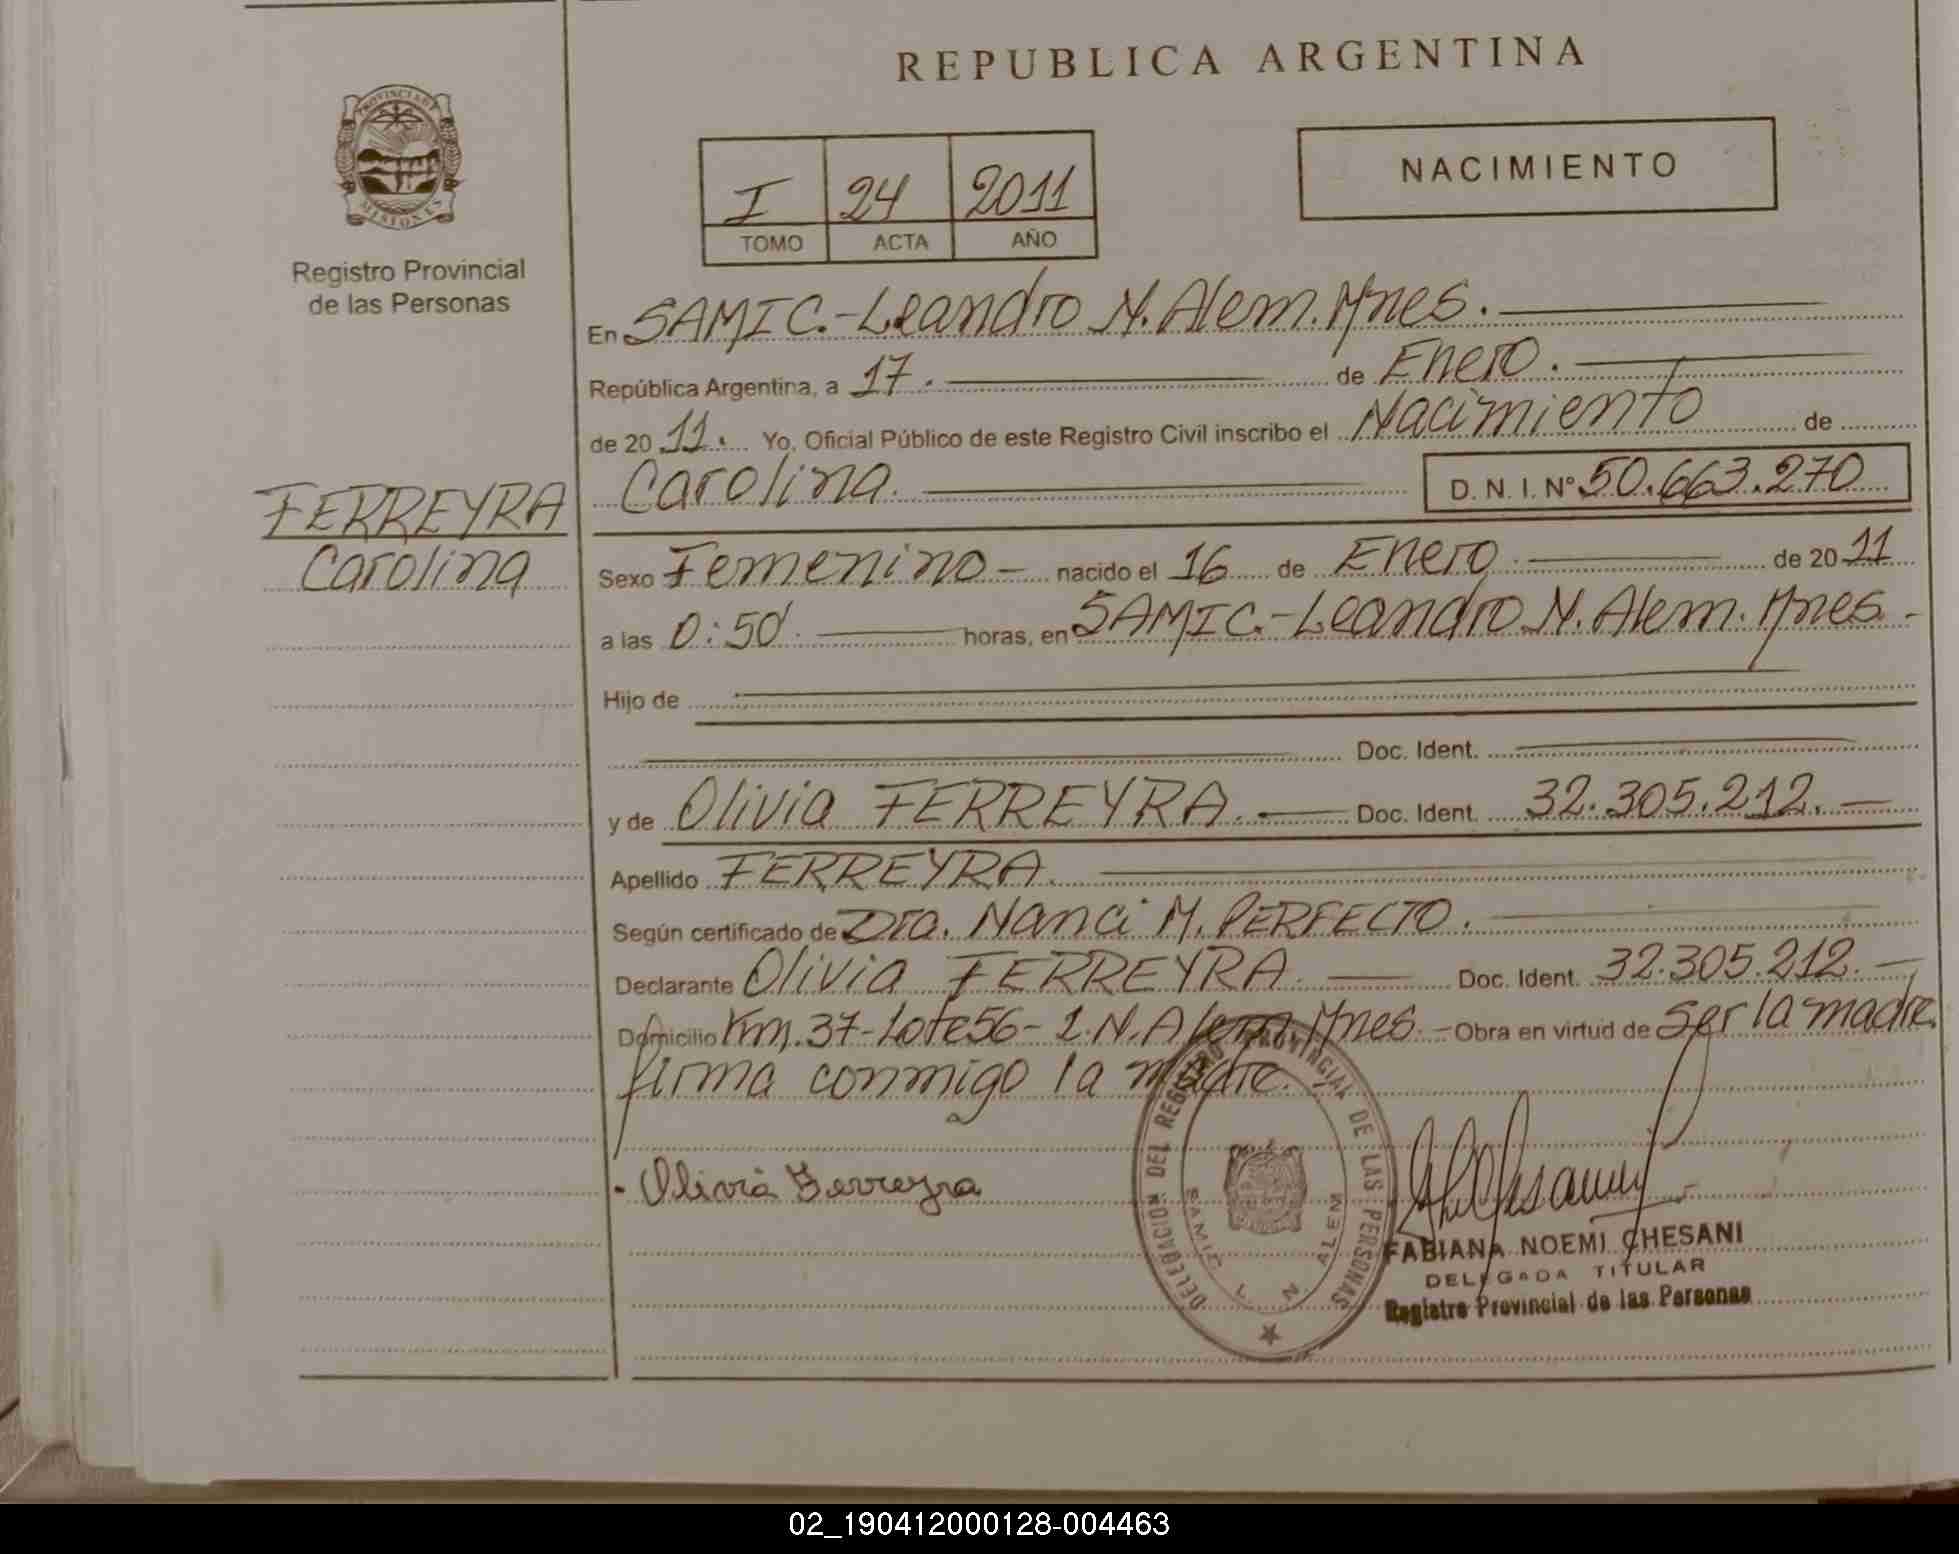 REPUBLICA ARGENTINA
PROVINCIA DE
MISIONES
Registro Provincial
de las Personas
I 24 2011
TOMO ACTA AÑO
NACIMIENTO
En SAMIC.-Leandro N. Alem. Mnes.
República Argentina, a 17. de Enero.
de 20 11. Yo, Oficial Público de este Registro Civil inscribo el Nacimiento de
Carolina. D. N. I. Nº 50.663.270
FERREYRA
Carolina
Sexo Femenino - nacido el 16 de Enero. de 20 11
a las 0:50. horas, en SAMIC.-Leandro N. Alem. Mnes.-
Hijo de
Doc. Ident.
y de Olivia FERREYRA. Doc. Ident. 32.305.212.
Apellido FERREYRA.
Según certificado de Dra. Nanci M. PERFECTO.
Declarante Olivia FERREYRA. Doc. Ident. 32.305.212.
Domicilio Km. 37-Lote 56- L.N. Alem. Mnes. - Obra en virtud de ser la madre.
firma conmigo la madre.
Olivia Ferreyra
DELEGACION DEL REGISTRO PROVINCIAL DE LAS PERSONAS
SAMIC L. N ALEM
FABIANA NOEMI CHESANI
DELEGADA TITULAR
Registro Provincial de las Personas
02_190412000128-004463